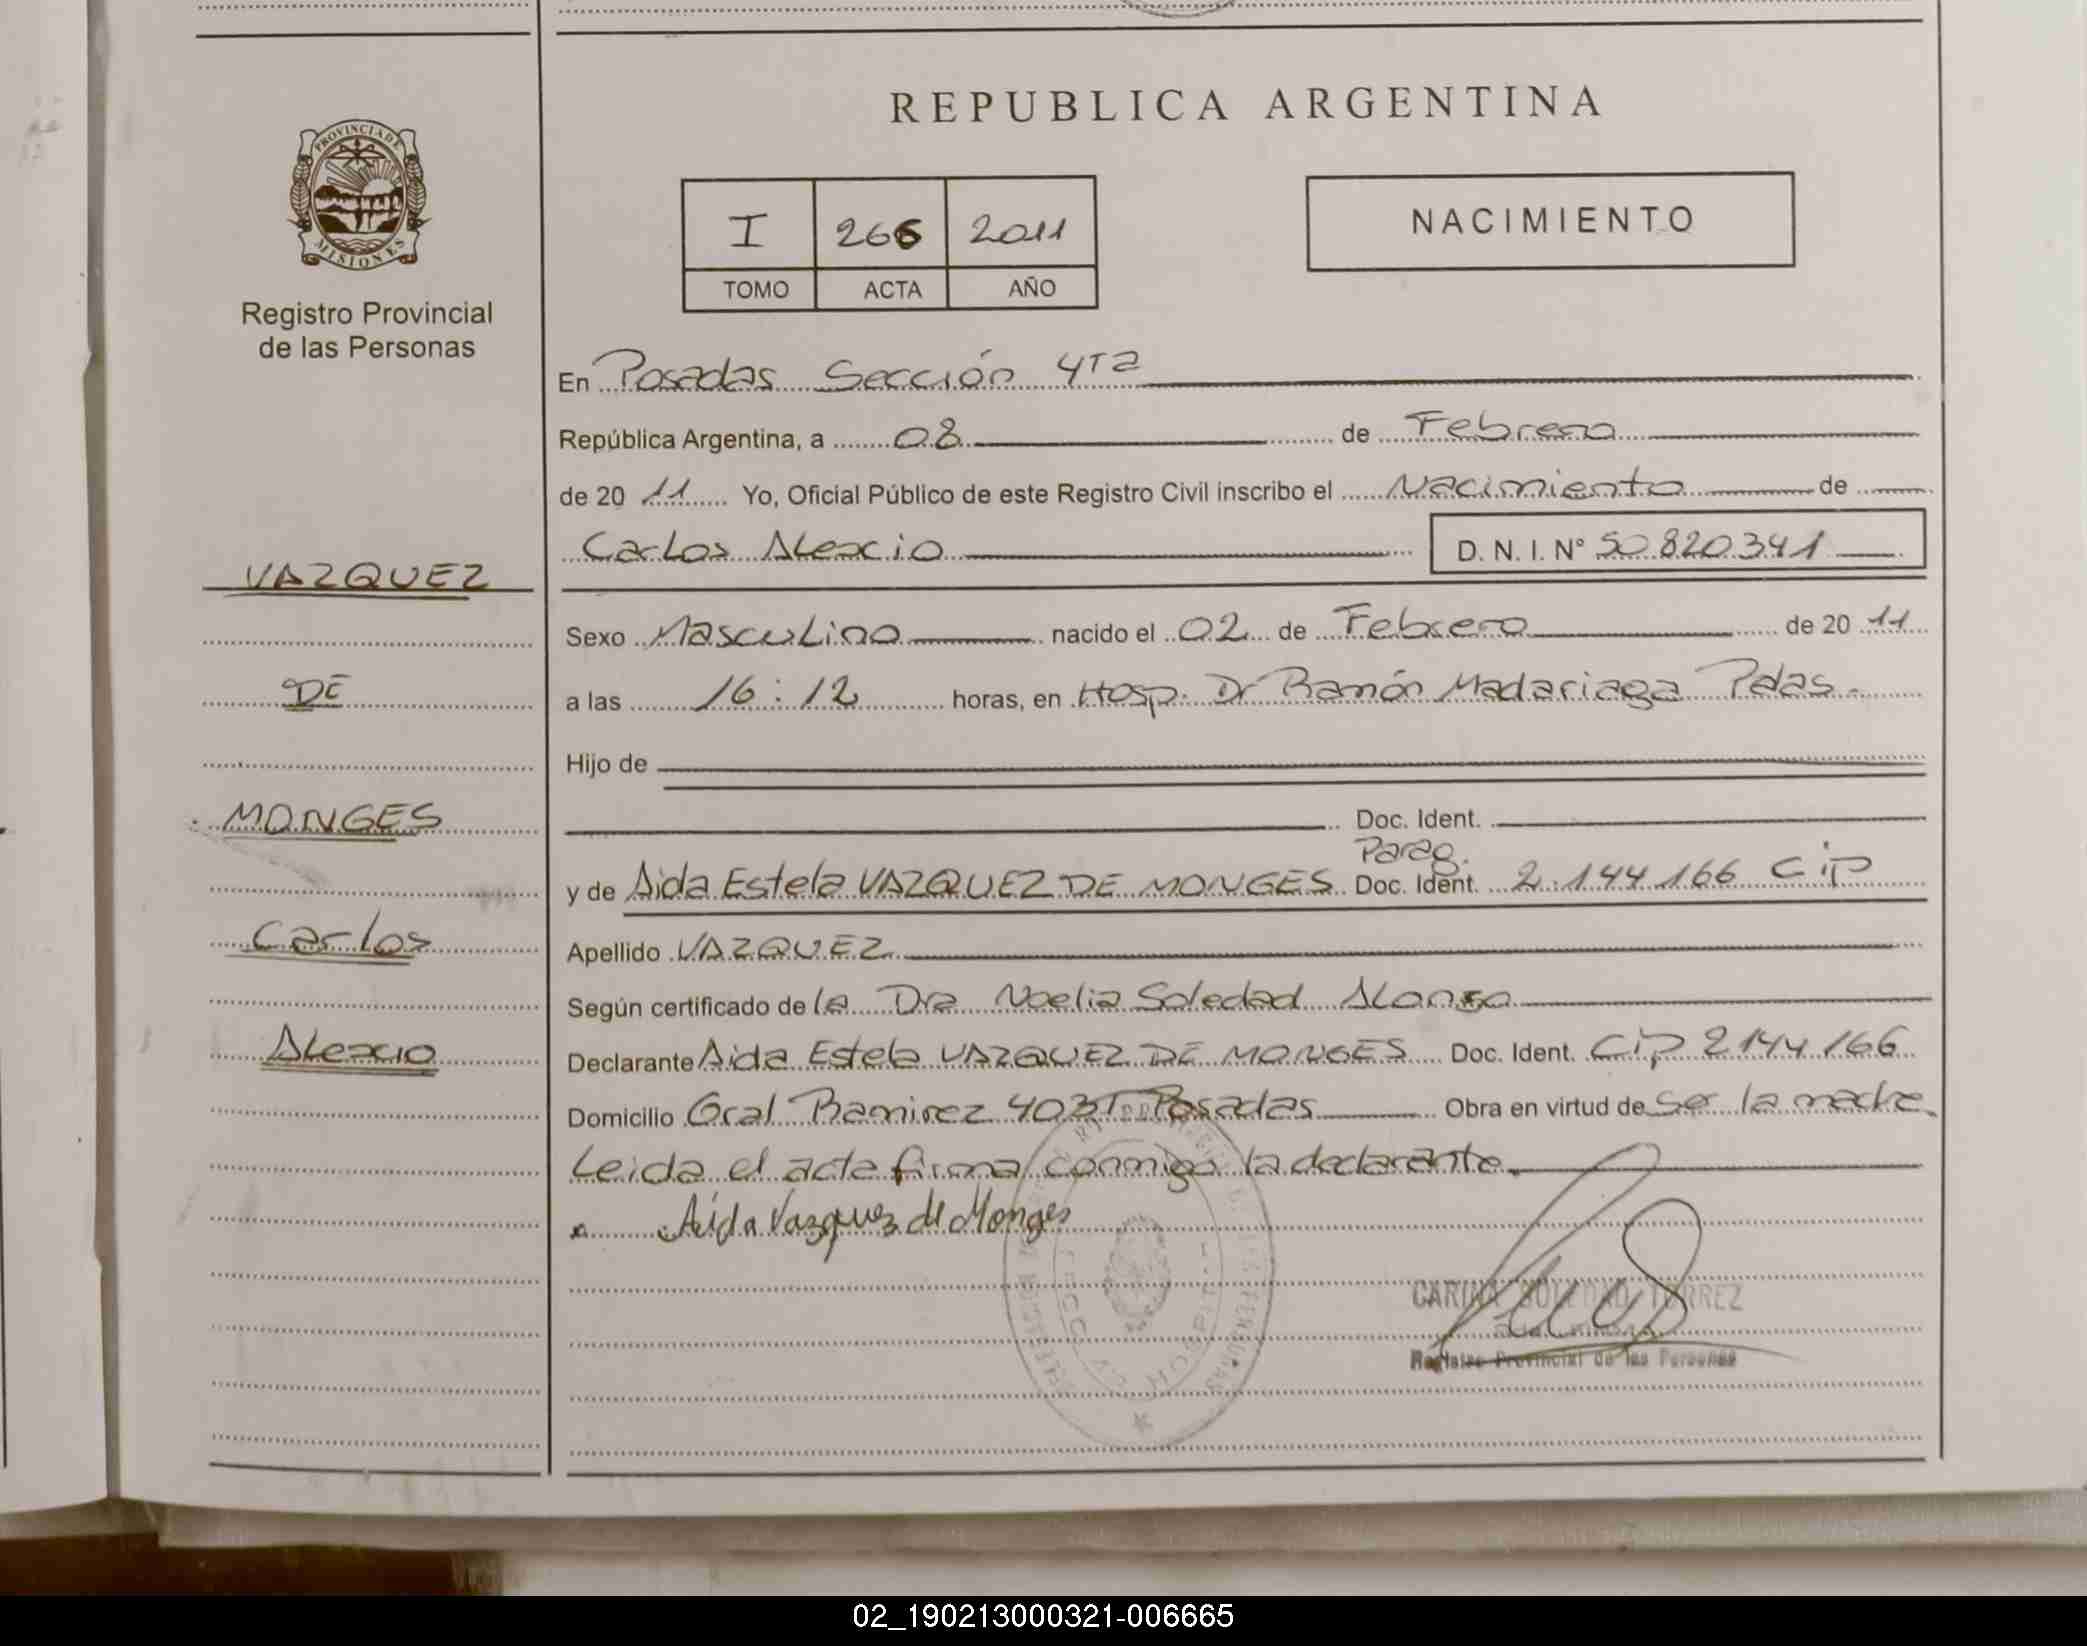 REPUBLICA ARGENTINA
PROVINCIA DE
MISIONES
Registro Provincial
de las Personas
I 266 2011
TOMO ACTA AÑO
NACIMIENTO
En Posadas Sección 4Ta
República Argentina, a 08 de Febrero
de 20 11 Yo, Oficial Público de este Registro Civil inscribo el Nacimiento de
Carlos Alexio D. N. I. N° 50.820.341
Sexo Masculino nacido el 02 de Febrero de 20 11
a las 16:12 horas, en Hosp. Dr Ramón Madariaga Pdas.
Hijo de
Doc. Ident.
Parag.
y de Aida Estela VAZQUEZ DE MONGES Doc. Ident. 2.144.166 CiP
Apellido VAZQUEZ
Según certificado de la Dra Noelia Soledad Alonso
Declarante Aida Estela VAZQUEZ DE MONGES Doc. Ident. CiP 2144166
Domicilio Gral Ramirez Posadas Obra en virtud de ser la madre
Leida el acta firma conmigo la declarante.
Aida Vazquez de Monges
CARINA SOLEDAD TORREZ
Registro Provincial de las Personas
VAZQUEZ
DE
MONGES
Carlos
Alexio
02_190213000321-006665